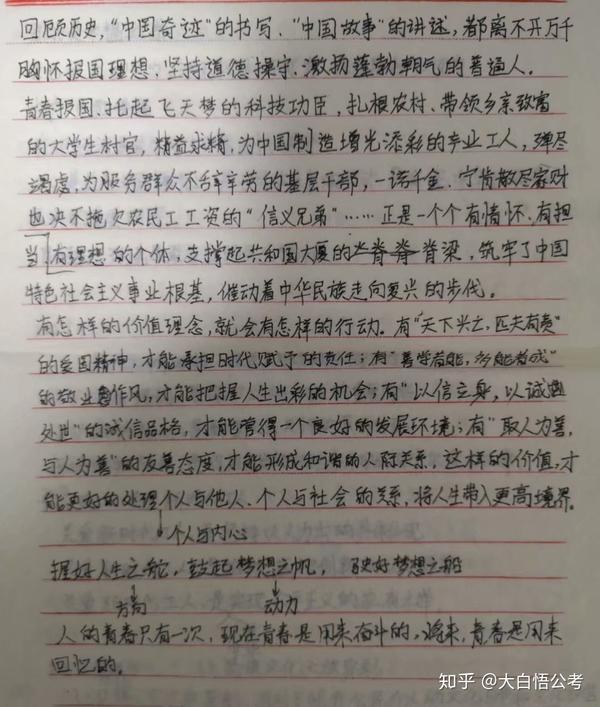 回顾历史，“中国奇迹”的书写、“中国故事”的讲述，都离不开万千
胸怀报国理想、坚持道德操守、激扬蓬勃朝气的普通人。
青春报国、托起飞天梦的科技功臣，扎根农村、带领乡亲致富
的大学生村官，精益求精，为中国制造增光添彩的产业工人，殚尽
竭虑，为服务群众不舍辛劳的基层干部，一诺千金、宁肯散尽家财
也决不拖欠农民工工资的“信义兄弟”……正是一个个有情怀、有担
当、有理想的个体，支撑起共和国大厦的脊梁，筑牢了中国
特色社会主义事业根基，催动着中华民族走向复兴的步伐。
有怎样的价值理念，就会有怎样的行动。有“天下兴亡，匹夫有责”
的爱国精神，才能承担时代赋予的责任；有“善学者能，多能者成”
的敬业作风，才能把握人生出彩的机会；有“以信立身，以诚
处世”的诚信品格，才能营得一个良好的发展环境；有“取人为善，
与人为善”的友善态度，才能形成和谐的人际关系，这样的价值，才
能更好的处理个人与他人、个人与社会的关系，将人生带入更高境界。
个人与内心
握好人生之舵，鼓起梦想之帆， 驶好梦想之船
方向 动力
人的青春只有一次，现在青春是用来奋斗的，将来，青春是用来
回忆的。
知乎 @大白悟公考